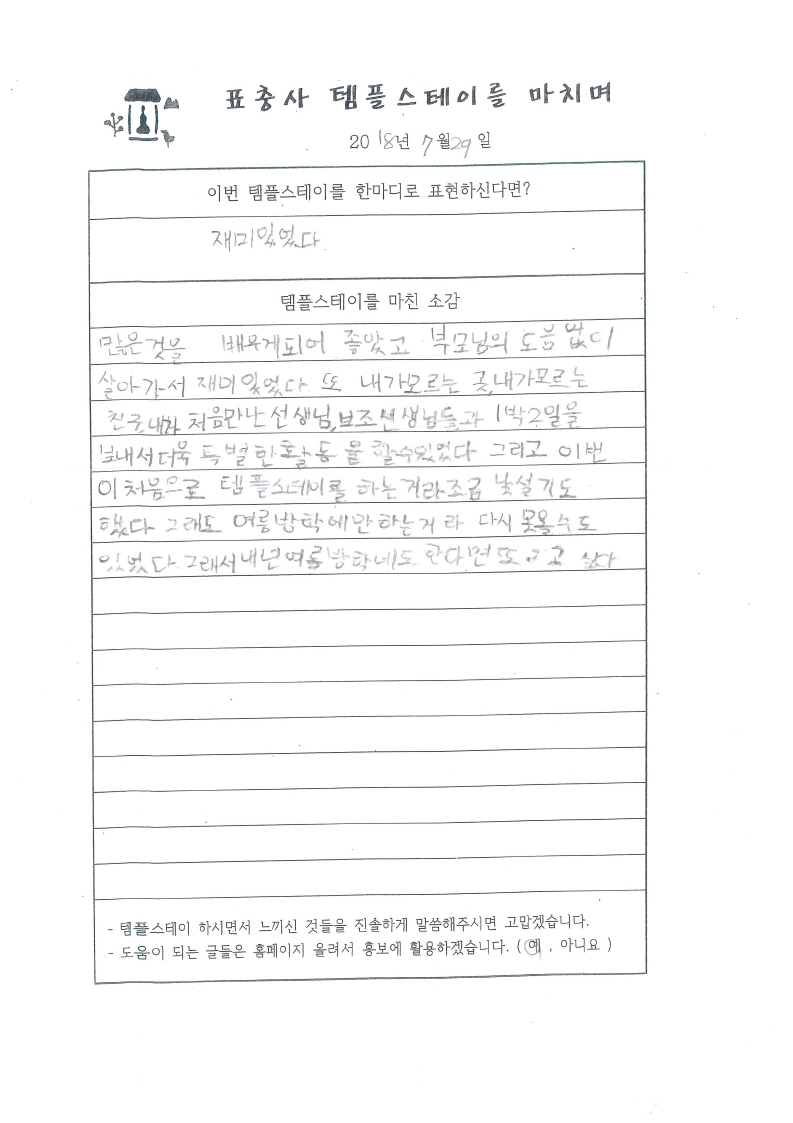 표충사 템플스테이를 마치며
2018년 7월29일
이번 템플스테이를 한마디로 표현하신다면?
재미있었다.
템플스테이를 마친 소감
많은것을 배우게되어 좋았고 부모님의 도움 없이
살아가서 재미있었다 또 내가모르는 곳,내가모르는
친구, 처음만난선생님,보조선생님들과 1박2일을
보내서더욱 특별한활동 을 할수있었다 그리고 이번
이처음으로 템플스테이를 하는거라조금 낯설기도
했다 그래도 여름방학에만하는거 라 다시 못올수도
있었다.그래서내년여름방학에도 한다면또 오고 싶다
- 템플스테이 하시면서 느끼신 것들을 진솔하게 말씀해주시면 고맙겠습니다.
- 도움이 되는 글들은 홈페이지 올려서 홍보에 활용하겠습니다. ( 예 , 아니요 )